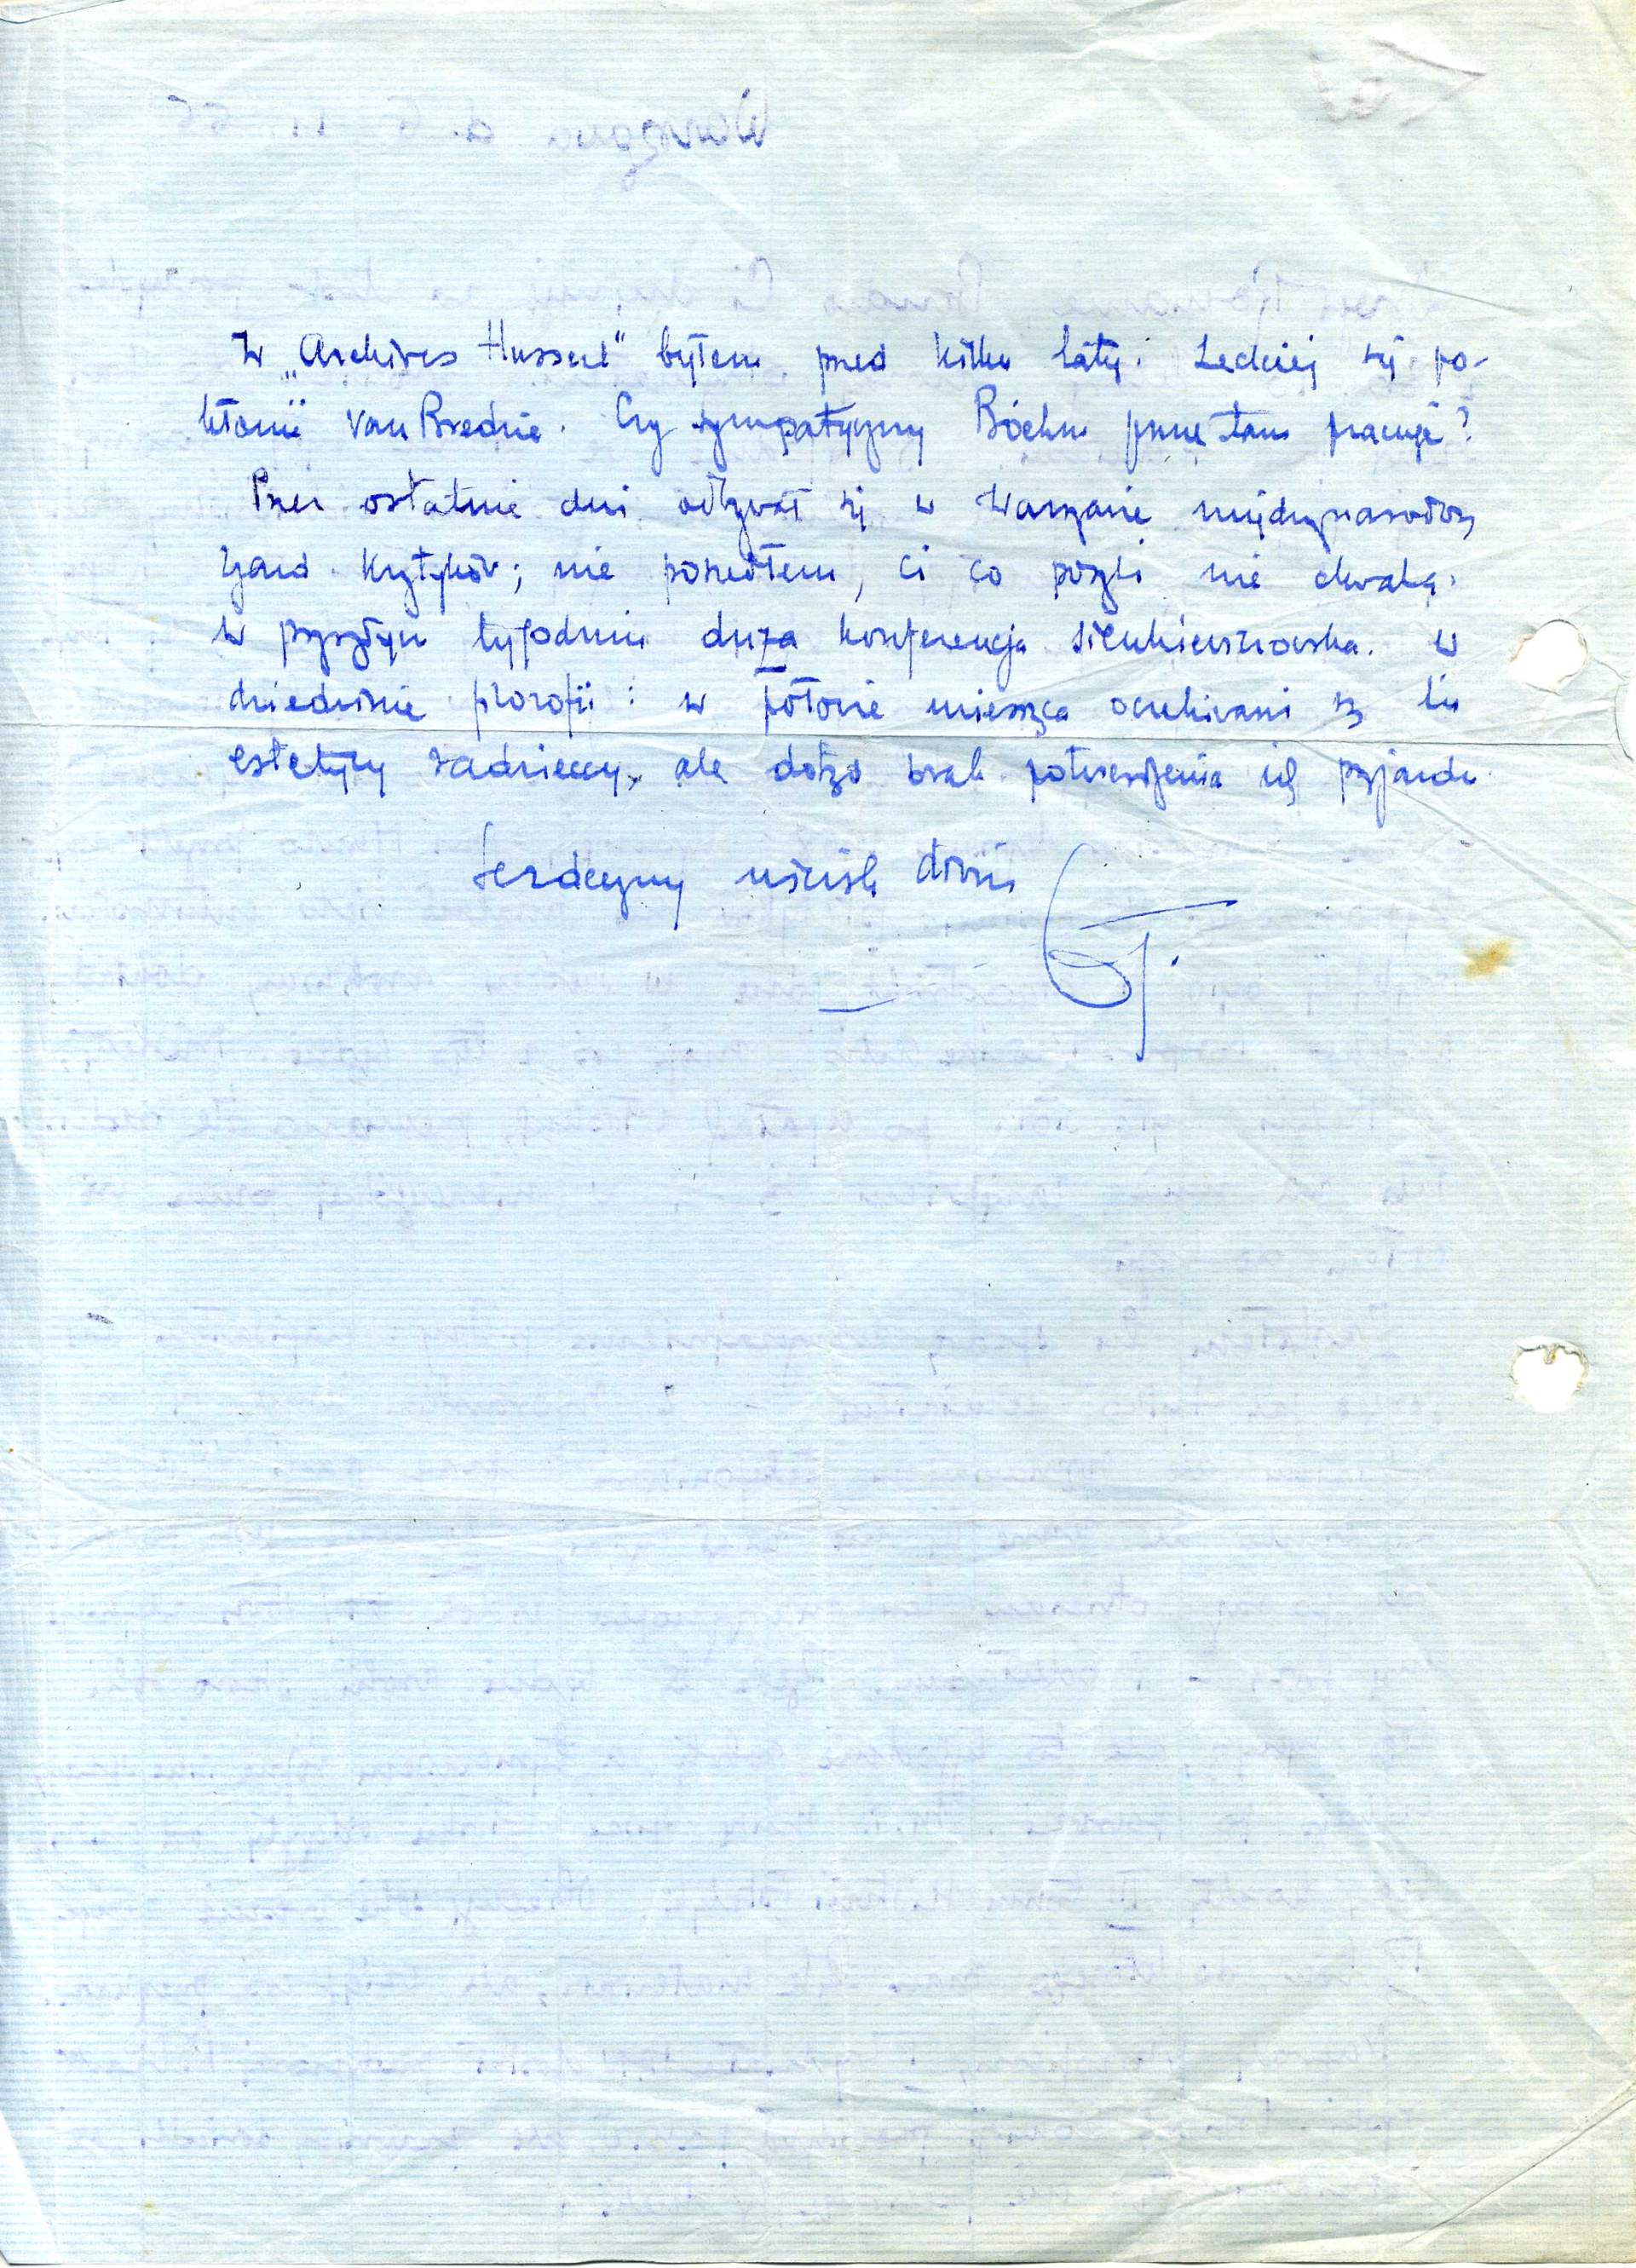 W „Archives Husserl" byłem przed kilku laty. Zechciej się po-
kłonić Van Bredzie. Czy sympatyczny Böehm tam pracuje?
Przez ostatnie dni odbywał się w Warszawie międzynarodowy
zjazd krytyków; nie poszedłem, ci co poszli nie chwalą.
W przyszłym tygodniu duża konferencja sienkiewiczowska. W
dziedzinie filozofii: w połowie miesiąca oczekiwani są tu
estetycy radzieccy, ale dotąd brak potwierdzenia ich przyjazdu.
Serdeczny uścisk dłoni